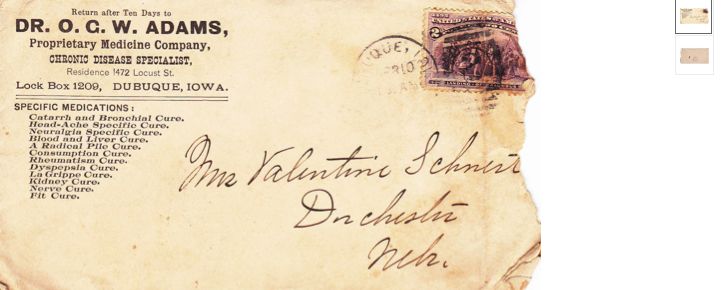 Return after Ten Days to
DR. O. G. W. ADAMS,
Proprietary Medicine Company,
CHRONIC DISEASE SPECIALIST,
Residence 1472 Locust St.
Lock Box 1209, DUBUQUE, IOWA.
SPECIFIC MEDICATIONS:
Catarrh and Bronchial Cure.
Head-Ache Specific Cure.
Neuralgia Specific Cure.
Blood and Liver Cure.
A Radical Pile Cure.
Consumption Cure.
Rheumatism Cure.
Dyspepsia Cure.
La Grippe Cure.
Kidney Cure.
Nerve Cure.
Fit Cure.
UNITED STATES
2
LANDING
Valentine
Dorchester
Neb.